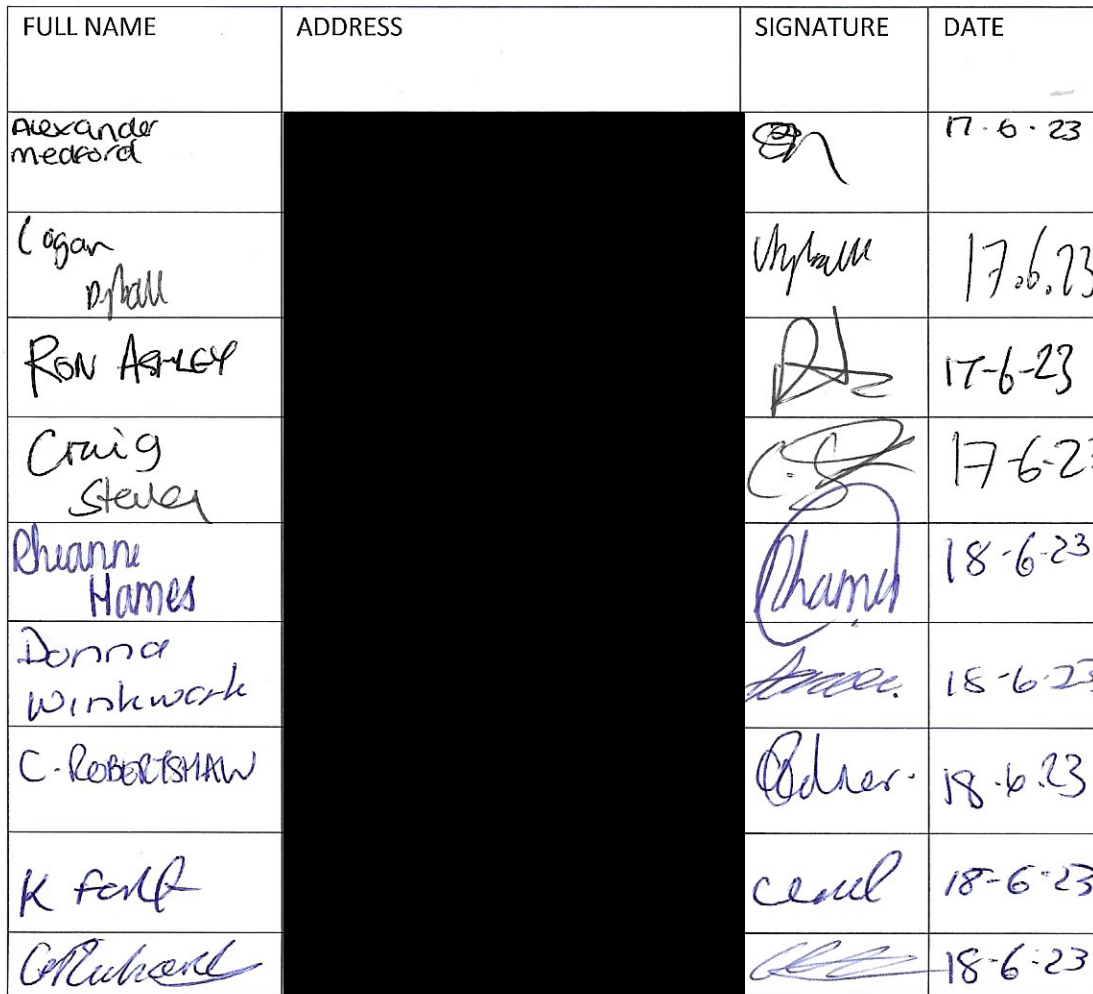 FULL NAME ADDRESS SIGNATURE DATE
Alexander
medford 17.6.23
Logan
Dyball 17.6.23
RON ASHLEY 17-6-23
Craig 17-6-23
Rhianne
Hames Rhames 18-6-23
Donna
Winkwork 18-6-23
C. ROBERTSHAW 18.6.23
K 18-6-23
18-6-23